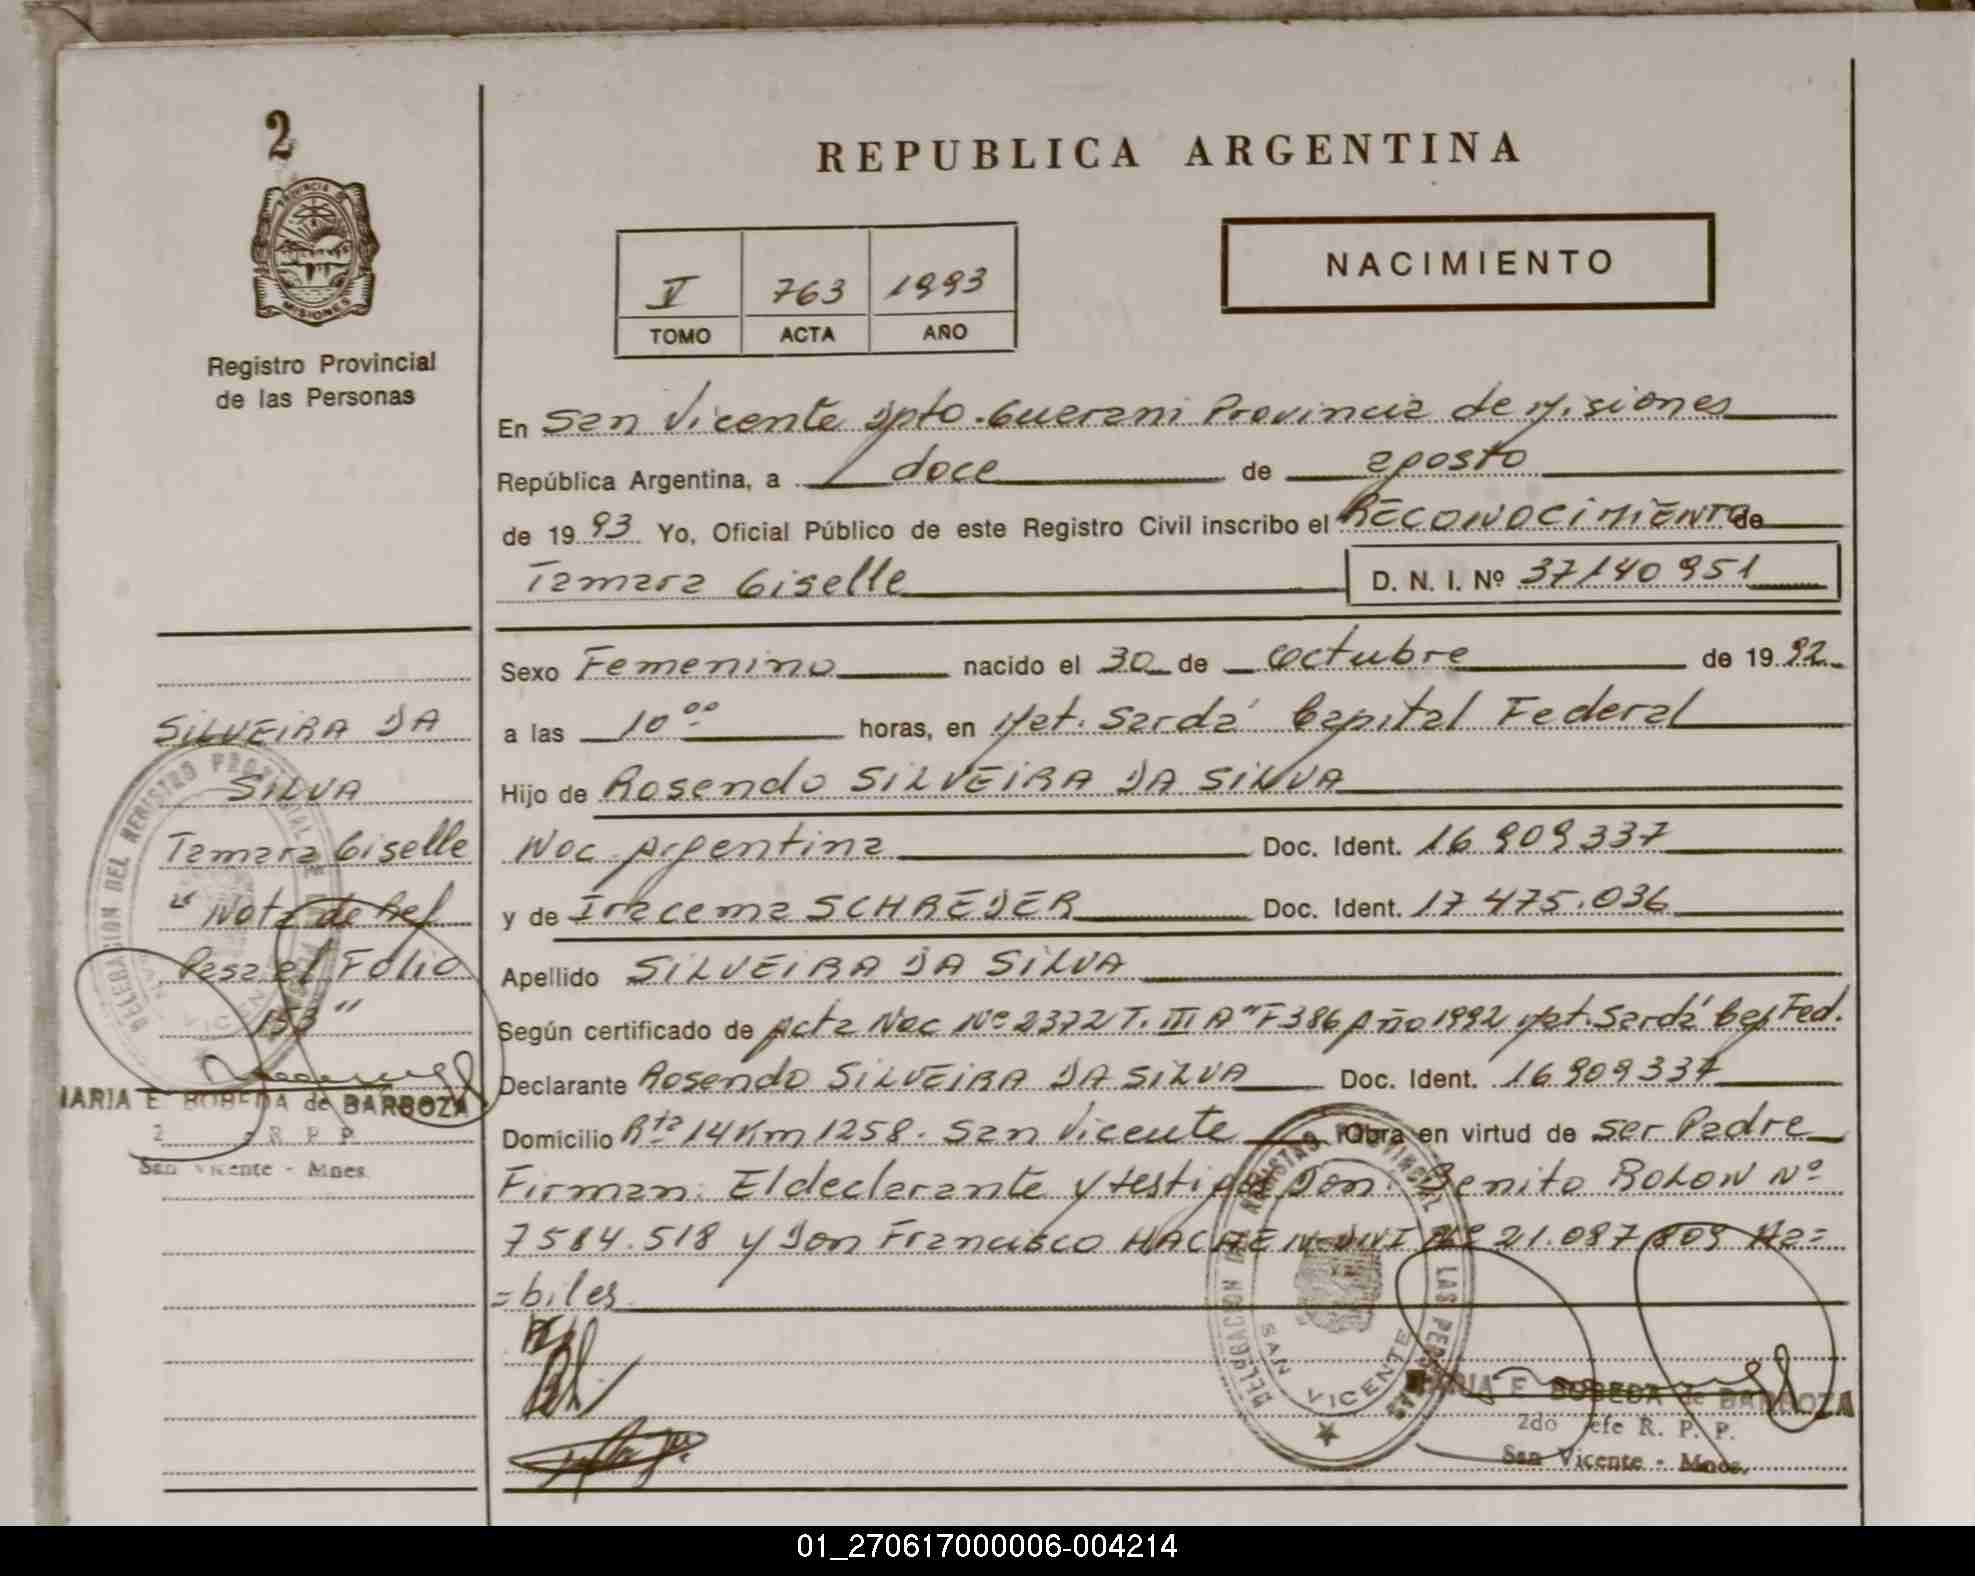 2
PROVINCIA DE
MISIONES
Registro Provincial
de las Personas
REPUBLICA ARGENTINA
NACIMIENTO
V 763 1993
TOMO ACTA AÑO
En San Vicente Dpto. Guarani Provincia de Misiones
República Argentina, a doce de agosto
de 1993 Yo, Oficial Público de este Registro Civil inscribo el RECONOCIMIENTO de
Tamara Giselle D. N. I. Nº 37140951
Sexo Femenino nacido el 30 de Octubre de 1992
a las 10 ºº horas, en Mat. Sardá Capital Federal
Hijo de Rosendo SILVEIRA DA SILVA
Nac. Argentina Doc. Ident. 16 909 337
y de Iracema SCHREDER Doc. Ident. 17 475.036
Apellido SILVEIRA DA SILVA
Según certificado de Acta Nac Nº 2372 T. III A" F 386 Año 1992 Mat. Sardá Cap Fed.
Declarante Rosendo SILVEIRA DA SILVA Doc. Ident. 16 909 337
Domicilio Rta 14 Km 1258. San Vicente Obra en virtud de ser Padre
Firman: El declarante y testigos Don: Benito ROLON Nº
7584.518 y Don Francisco Nº 21.087 809 Ha=
=biles
SILVEIRA DA
SILVA
Tamara Giselle
" Nota de Ref
Pasa al Folio
153 "
MARIA E. BOBEDA de BARBOZA
R. P. P.
San Vicente - Mnes.
DELEGACION DEL REGISTRO PROVINCIAL DE LAS PERSONAS
SAN VICENTE
MARIA E. BOBEDA de BARBOZA
2do Jefe R. P. P.
San Vicente - Mnes.
01_270617000006-004214